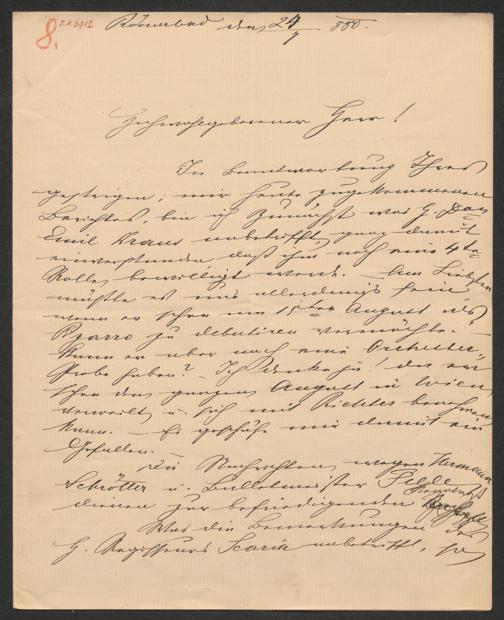 8.
Römerbad den 24/7 880.
Hochwohlgeborener Herr!
In Beantwortung Ihres
gestrigen, mir heute zugekommenen
Berichtes, bin ich zunächst was H. Dor
Emil Kraus anbetrifft, ganz damit
einverstanden daß ihm noch eine 4te
Rolle bewilligt werde. – Am Liebsten
müßte es mir allerdings sein,
wenn er schon am 15ten August als
Pizarro zu debutiren vermöchte. –
Kann er aber noch eine Orchester-
Probe haben? – Ich denke ja, da er
schon den ganzen August in Wien
verweilt u. sich mit Richter benehmen
kann. – Es geschähe mir damit ein
Gefallen. –
Die Nachrichten wegen Hermann
Schrötter u. Balletmeister
dienen zur befriedigenden
Was die Bemerkungen des
H. Regisseurs Scaria anbetrifft, so